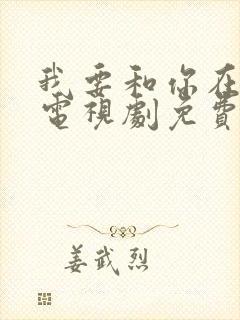 我要和你在
電視劇免費
姜武烈